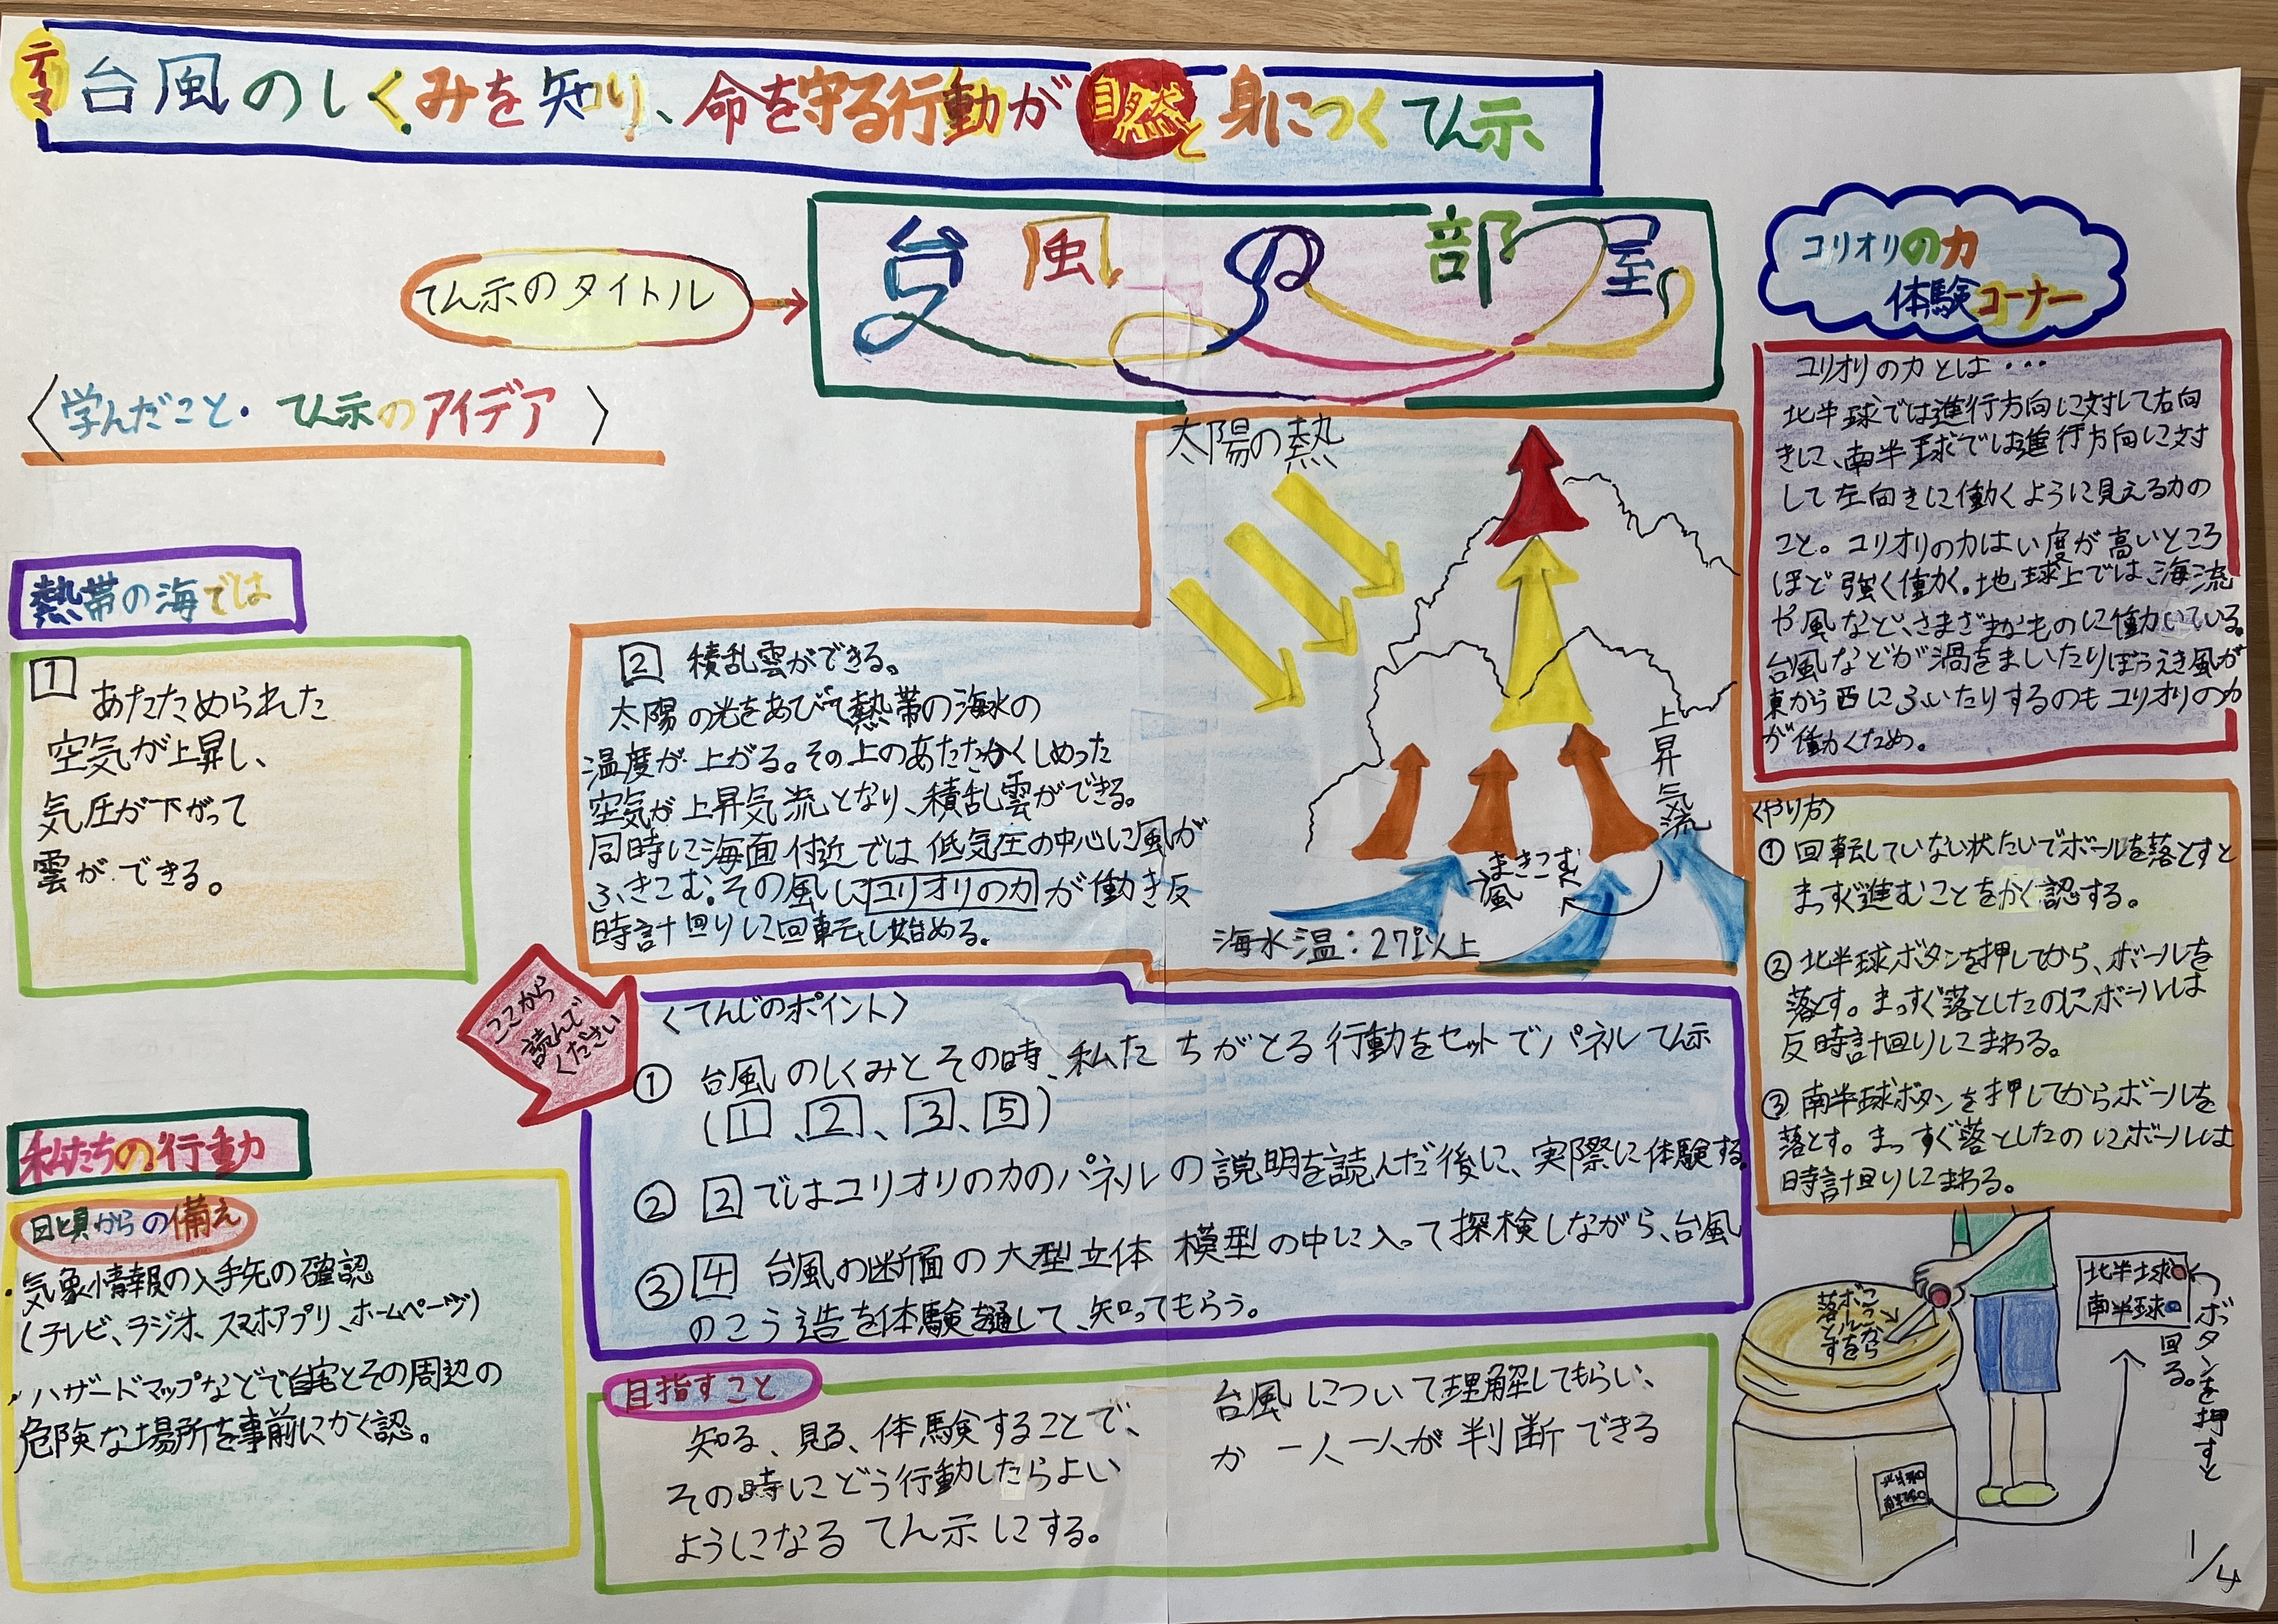 テーマ
台風のしくみを知り、命を守る行動が自然と身につくてん示
てん示のタイトル
台風の部屋
〈学んだこと・てん示のアイデア〉
熱帯の海では
1
あたためられた
空気が上昇し、
気圧が下がって
雲ができる。
2 積乱雲ができる。
太陽の光をあびて熱帯の海水の
温度が上がる。その上のあたたかくしめった
空気が上昇気流となり、積乱雲ができる。
同時に海面付近では低気圧の中心に風が
ふきこむ。その風にコリオリの力が働き反
時計回りに回転し始める。
太陽の熱
上昇気流
まきこむ
風
海水温:27℃以上
ここから
読んで
ください
〈てんじのポイント〉
① 台風のしくみとその時、私たちがとる行動をセットでパネルてん示
(1、2、3、5)
② 2ではコリオリの力のパネルの説明を読んだ後に、実際に体験する。
③ 4 台風の断面の大型立体模型の中に入って探検しながら、台風
のこう造を体験を通して、知ってもらう。
私たちの行動
日頃からの備え
・気象情報の入手先の確認
(テレビ、ラジオ、スマホアプリ、ホームページ)
・ハザードマップなどで自宅とその周辺の
危険な場所を事前にかく認。
目指すこと
知る、見る、体験することで、台風について理解してもらい、
その時にどう行動したらよいか一人一人が判断できる
ようになるてん示にする。
コリオリの力
体験コーナー
コリオリの力とは・・・
北半球では進行方向に対して右向
きに、南半球では進行方向に対
して左向きに働くように見える力の
こと。コリオリの力はい度が高いところ
ほど強く働く。地球上では海流
や風など、さまざまなものに働いている。
台風などが渦をまいたりぼうえき風が
東から西にふいたりするのもコリオリの力
が働くため。
〈やり方〉
① 回転していない状たいでボールを落とすと
まっすぐ進むことをかく認する。
② 北半球ボタンを押してから、ボールを
落とす。まっすぐ落としたのにボールは
反時計回りにまわる。
③ 南半球ボタンを押してからボールを
落とす。まっすぐ落としたのにボールは
時計回りにまわる。
ここから
ボールを
落とす
北半球
南半球
ボタンを押すと
回る。
北半球
南半球
1/4